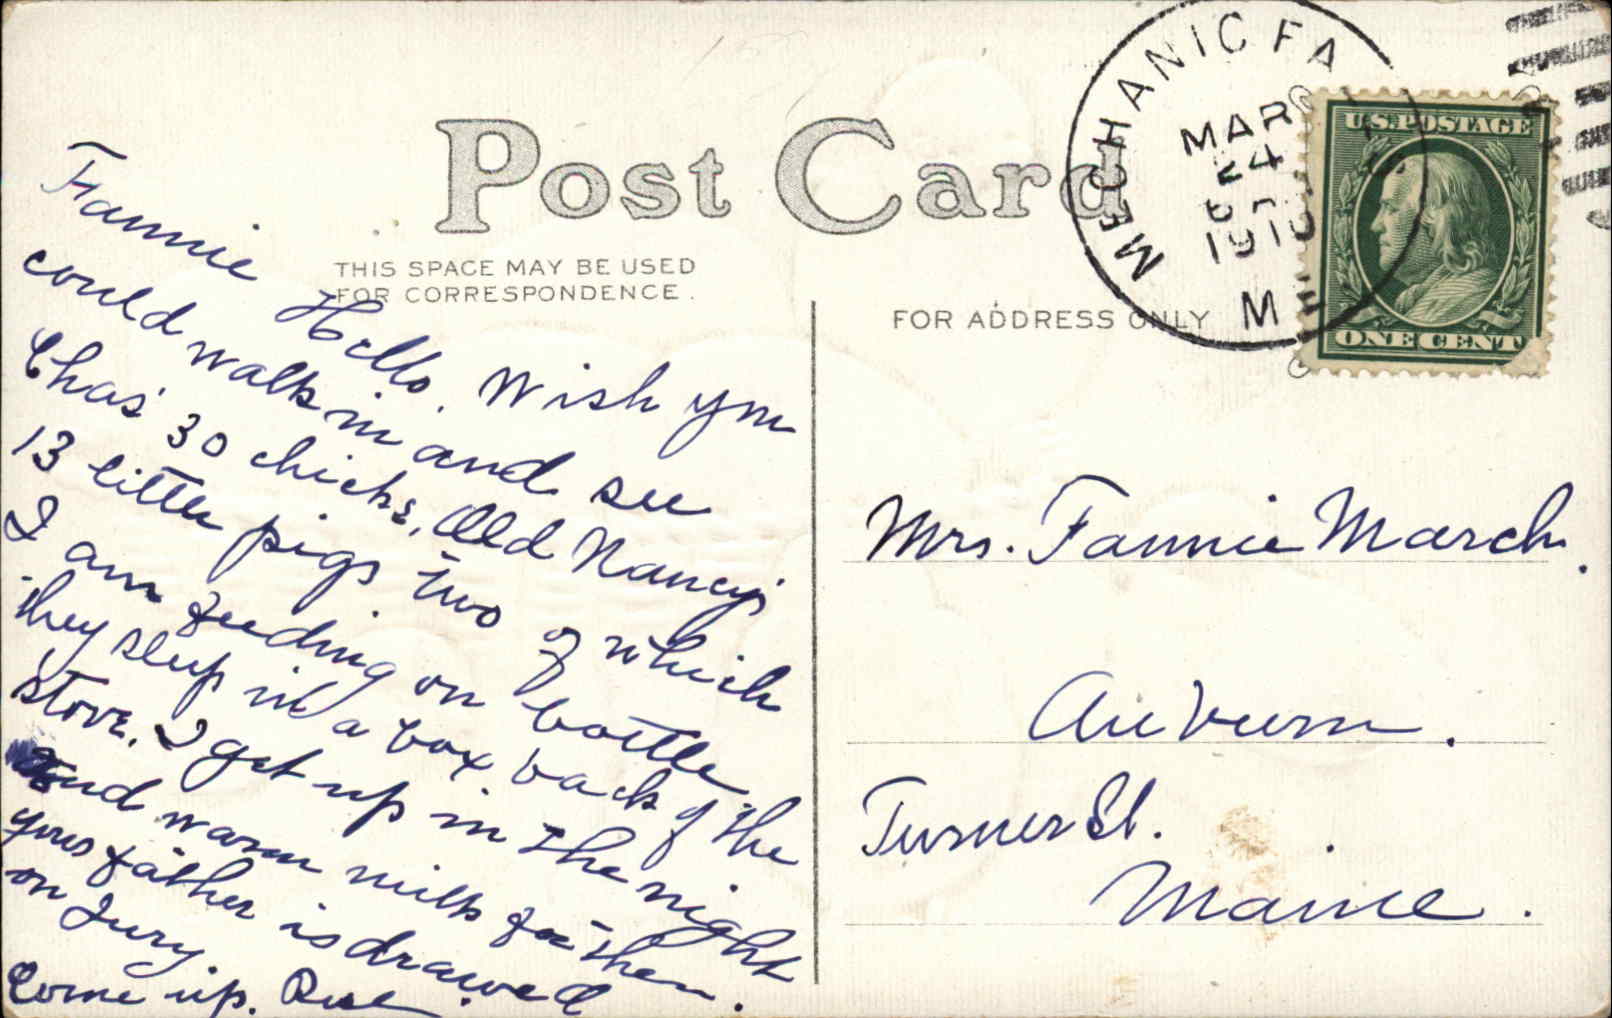 Post Card
THIS SPACE MAY BE USED
FOR CORRESPONDENCE.
FOR ADDRESS ONLY
MECHANIC FA
MAR
24
1910
ME
U.S. POSTAGE
ONE CENT
Fannie Hello. Wish you
could walk in and see
Chas' 30 chicks, Old Nancy's
13 little pigs two of which
I am feeding on bottle
they sleep in a box back of the
stove. I get up in the night
and warm milk for them.
your father is drawed
on Jury
Come up.
Mrs. Fannie March.
Auburn.
Turner St.
Maine.